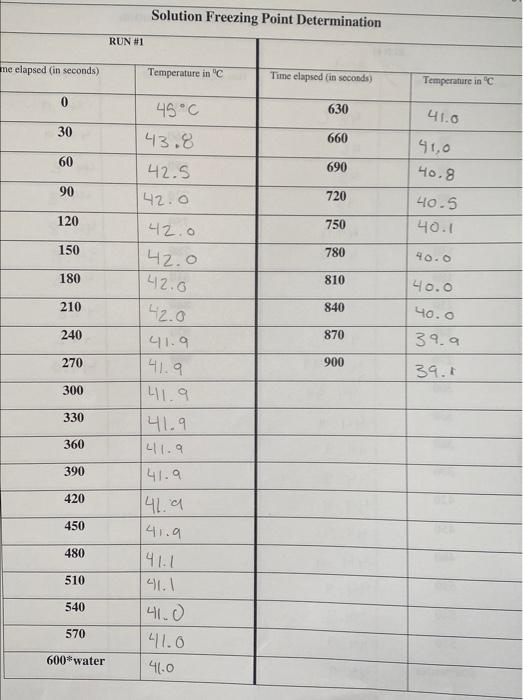 Solution Freezing Point Determination
RUN #1
me elapsed (in seconds) Temperature in °C Time elapsed (in seconds) Temperature in °C
0 45°C 630 41.0
30 43.8 660 41,0
60 42.5 690 40.8
90 42.0 720 40.5
120 42.0 750 40.1
150 42.0 780 40.0
180 42.0 810 40.0
210 42.0 840 40.0
240 41.9 870 39.9
270 41.9 900 39.1
300 41.9
330 41.9
360 41.9
390 41.9
420 41.9
450 41.9
480 41.1
510 41.1
540 41.0
570 41.0
600*water 41.0